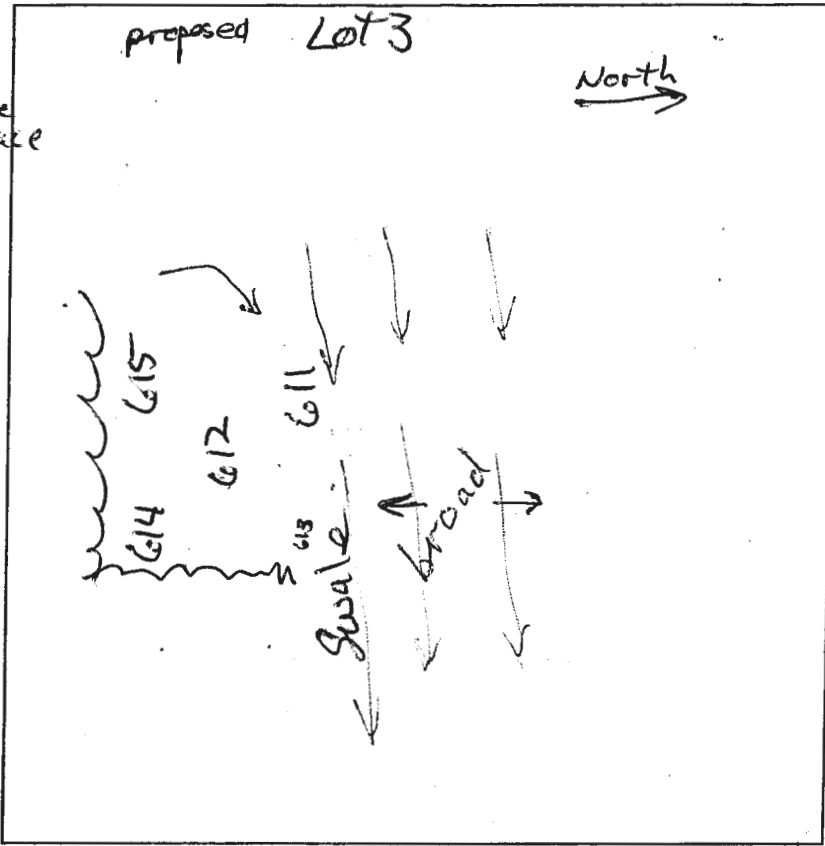 proposed Lot 3
North
615
611
612
614
613
Swale
broad